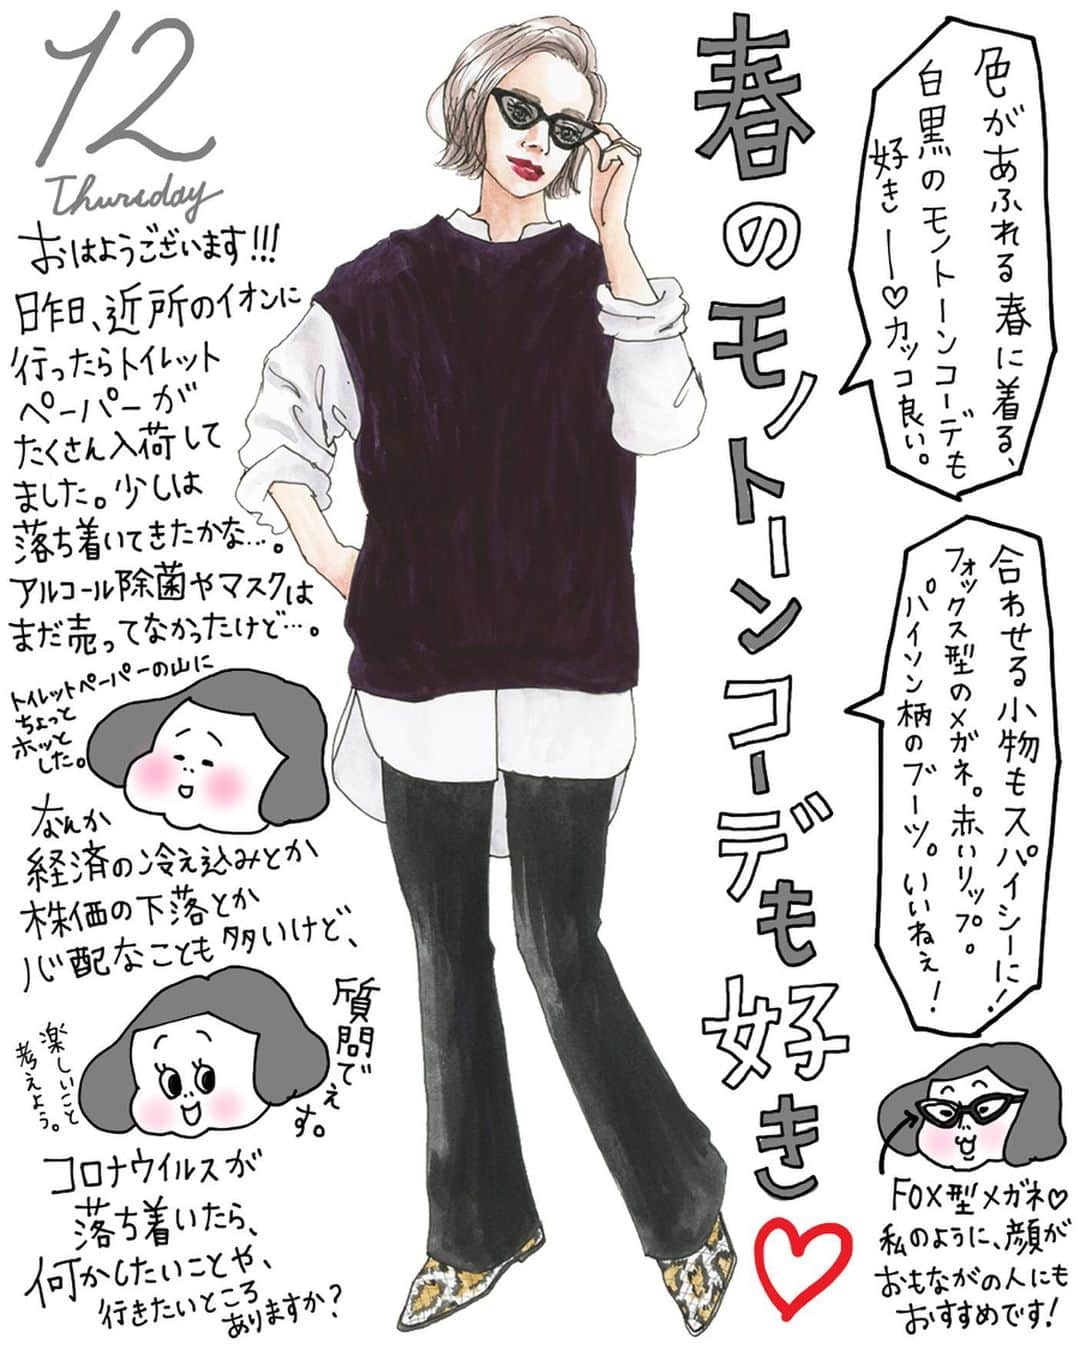 12
Thursday
おはようございます!!!
昨日、近所のイオンに
行ったらトイレット
ペーパーが
たくさん入荷して
ました。少しは
落ち着いてきたかな…。
アルコール除菌やマスクは
まだ売ってなかったけど…。
トイレットペーパーの山に
ちょっと
ホッと
した。
なんか
経済の冷え込みとか
株価の下落とか
心配なことも多いけど、
楽しいこと
考えよう。
質問でぇ
す。
コロナウイルスが
落ち着いたら、
何かしたいことや、
行きたいところ
ありますか?
春のモノトーンコーデも好き♡
色があふれる春に着る、
白黒のモノトーンコーデも
好きー♡カッコ良い。
合わせる小物もスパイシーに!
フォックス型のメガネ。赤いリップ。
パイソン柄のブーツ。いいねぇ!
FOX型メガネ♡
私のように、顔が
おもながの人にも
おすすめです!